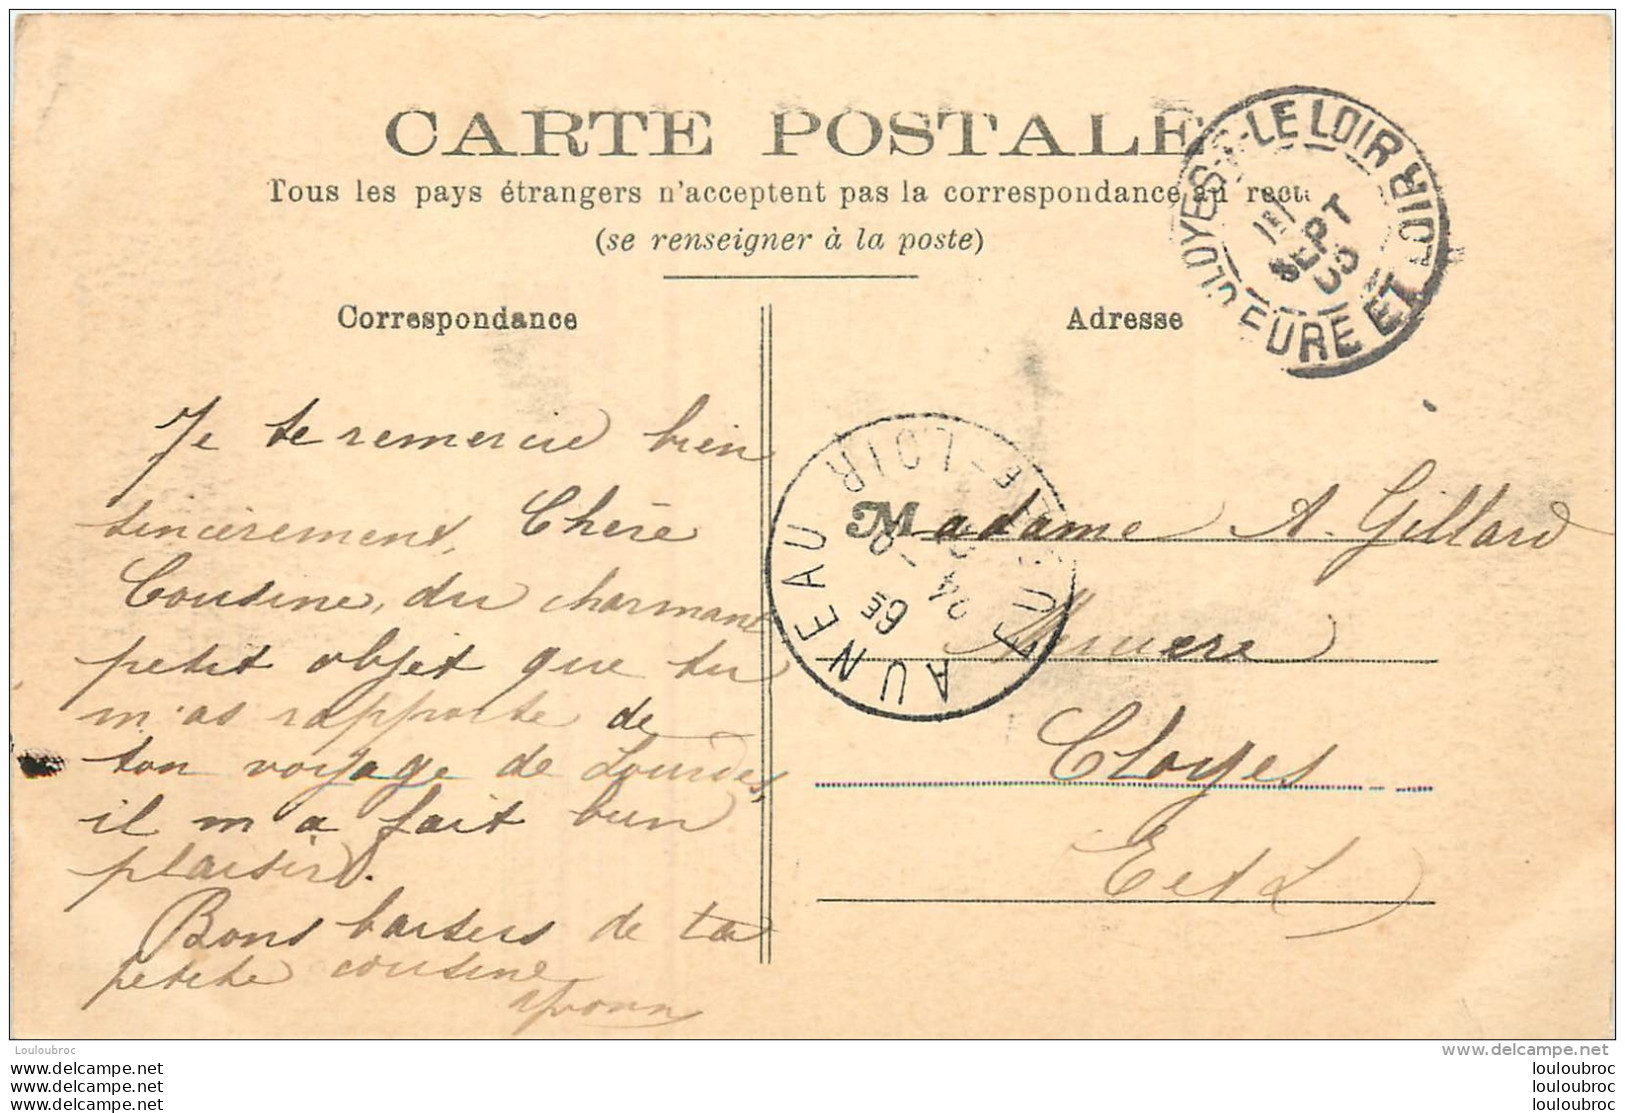 CARTE POSTALE
Tous les pays étrangers n'acceptent pas la correspondance au recto
(se renseigner à la poste)
Correspondance
Adresse
CLOYES-S-LE LOIR
EURE ET LOIR
SEPT
Je te remercie bien
sincèrement, Chère
Cousine, du charmant
petit objet que tu
m'as rapporté de
ton voyage de Lourdes,
il m'a fait bien
plaisir.
Bons baisers de ta
petite cousine
Yvonn
AUNEAU
EURE-ET-LOIR
6E
24
Madame A. Gillard
Cloyes
E et L
Louloubroc
www.delcampe.net
louloubroc
louloubroc
louloubroc
www.delcampe.net
www.delcampe.net
www.delcampe.net